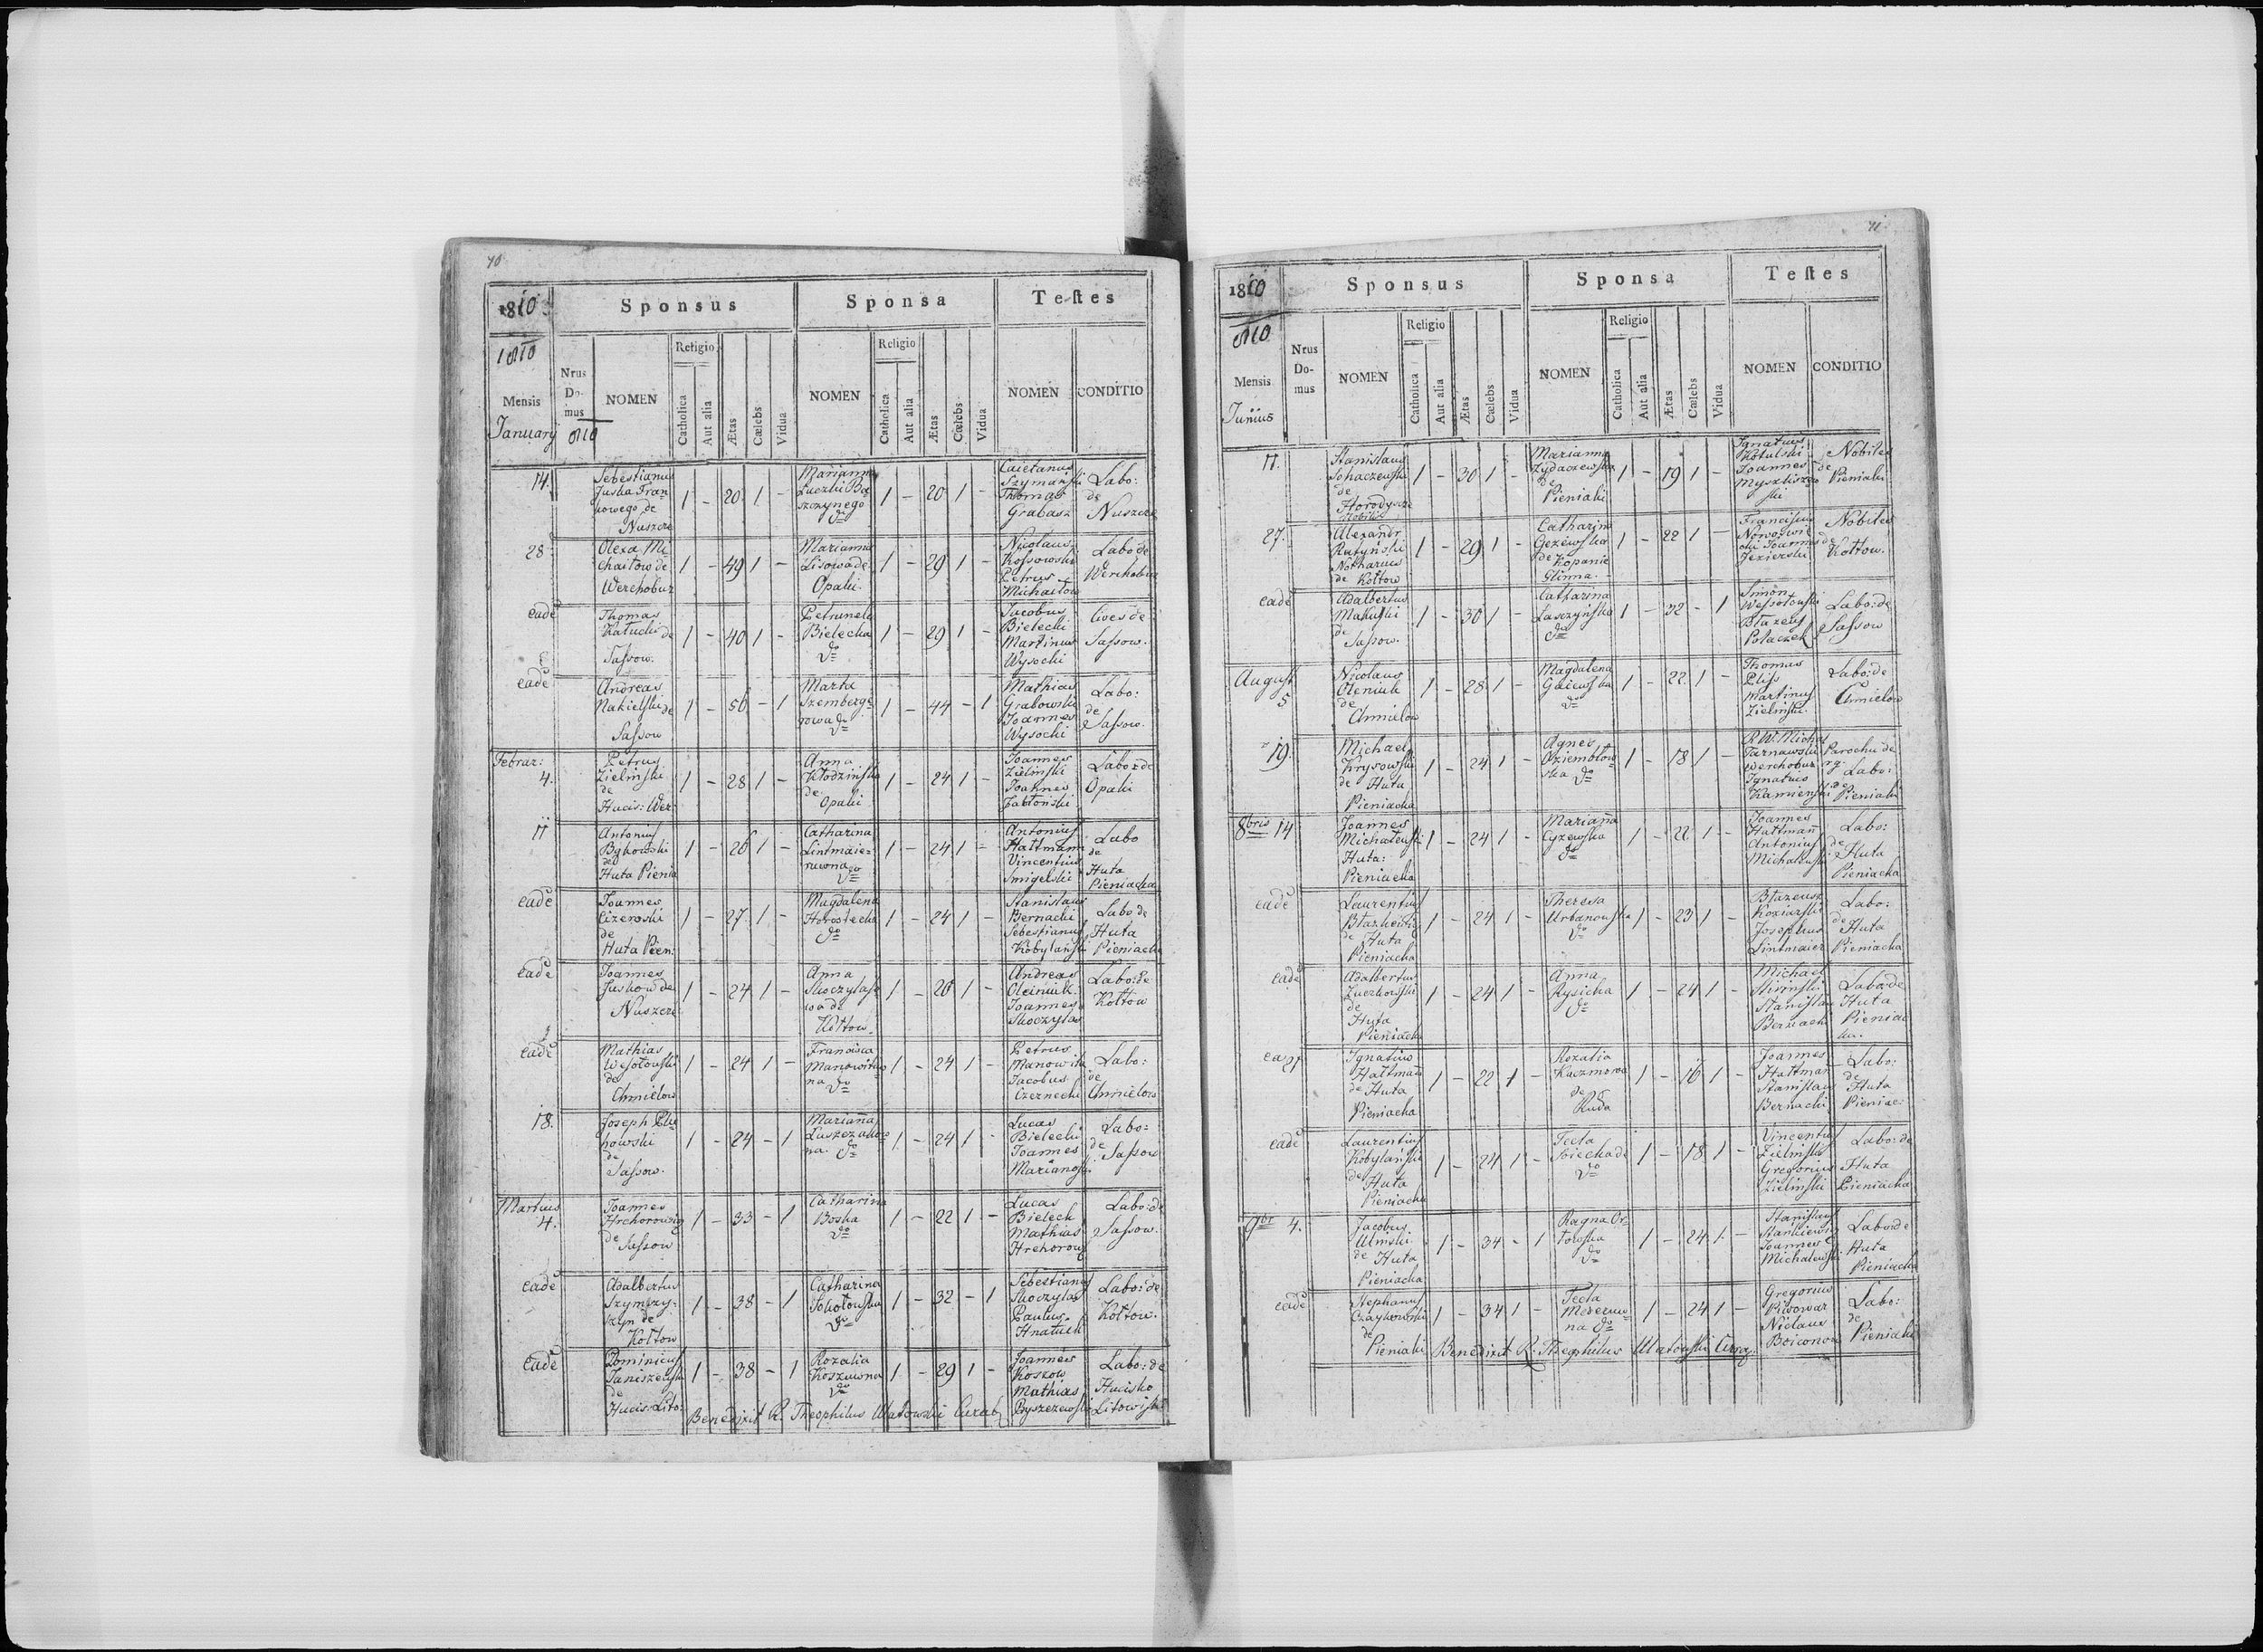 70
1810
Sponsus
Sponsa
Testes
1810
Mensis
January
Nrus Do- mus
NOMEN
Religio
Catholica
Aut alia
Ætas
Cœlebs
Vidua
NOMEN
Religio
Catholica
Aut alia
Ætas
Cœlebs
Vidua
NOMEN
CONDITIO
14.
Sebestianus
Juska Fran
kowego de
Nuszcze
1 - 20 1 -
Marianna
Luczki Ba
szczynego
do
1 - 20 1 -
Caietanus
Szymański
Thomas
Grabasz
Labo:
de
Nuszcze
28
Olexa Mi
chaitow de
Werchobuz
1 - 49 1 -
Marianna
Lisowa de
Opaki.
1 - 29 1 -
Nicolaus
Kossowski
Petrus
Michaitow
Labo de
Werchobuz
eade
Thomas
Katucki de
Sassow.
1 - 40 1 -
Petrunela
Bielecka
do
1 - 29 1 -
Jacobus
Bielecki
Martinus
Wysocki
Cives de
Sassow.
eade
Andreas
Nakielski de
Sassow
1 - 56 - 1
Marta
Szemberge
rowa do
1 - 44 - 1
Mathias
Grabowski
Joannes
Wysocki
Labo:
de
Sassow.
Febrar:
4.
Petrus
Zielinski
de
Hucis: Wer:
1 - 28 1 -
Anna
Kłodzinska
de
Opaki
1 - 24 1 -
Joannes
Zielinski
Joannes
Jabłonski
Labo: de
Opaki
11
Antonius
Bykowski
de
Huta Pienia
1 - 26 1 -
Catharina
Lintmaie=
rowna
do
1 - 24 1 -
Antonius
Hattmann
Vincentius
Smigelski
Labo
de
Huta
Pieniacka
eade
Joannes
Cizeroski
de
Huta Pien:
1 - 27 1 -
Magdalena
Horostecka
do
1 - 24 1 -
Stanislaus
Bernacki
Sebestianus
Kobylański
Labo de
Huta
Pieniacka
eade
Joannes
Juskow de
Nuszcze
1 - 24 1 -
Anna
Skoczylas
wa de
Kołtow.
1 - 20 1 -
Andreas
Oleiniuk.
Joannes
Skoczylas
Labo: de
Kołtow
eade
Mathias
Wesołowski
de
Chmielow
1 - 24 1 -
Francisca
Manowitow
na do
1 - 24 1 -
Petrus
Manowita
Jacobus
Czernecki
Labo:
de
Chmielow
18.
Joseph
kowski
de
Sassow.
1 - 24 - 1
Marianna
Luszczakow
na do
1 - 24 1 -
Lucas
Bielecki
Joannes
Marianoski
Labo:
de
Sassow
Martius
4.
Joannes
Hrehorowiz
de
Sassow
1 - 33 - 1
Catharina
Boska
do
1 - 22 1 -
Lucas
Bieleck
Mathias
Hrehorow
Labo: de
Sassow.
eade
Adalbertus
Szymczy-
szyn de
Koltow
1 - 38 - 1
Catharina
Sokołowska
do
1 - 32 - 1
Sebestianus
Skoczylas
Paulus
Hnatiuk
Labo: de
Kołtow.
eade
Dominicus
Janiszewski
de
Hucis: Lito:
1 - 38 - 1
Rozalia
Koszowna
do
1 - 29 1 -
Joannes
Koszow
Mathias
Pryszczewski
Labo: de
Hucisko
Litowiska
Benedixit R. Theophilus Ułatowski Curat.
71
1810
Sponsus
Sponsa
Testes
1810
Mensis
Junius
Nrus Do- mus
NOMEN
Religio
Catholica
Aut alia
Ætas
Cœlebs
Vidua
NOMEN
Religio
Catholica
Aut alia
Ætas
Cœlebs
Vidua
NOMEN
CONDITIO
17.
Stanislaus
Sohaczewski
de
Horodyszcze
Nobilis
1 - 30 1 -
Marianna
Zydaczewska
de
Pieniaki
1 - 19 1 -
Ignatius
Kotulski
Joannes
Myszkiszew
ski
Nobiles
de
Pieniaki
27.
Alexandr
Rutyński
Notharius
de Kołtow
1 - 29 1 -
Catharina
Gezewska
de Kopanie
Glinna.
1 - 22 1 -
Franciscus
Nowoswie
cki Joannes
Jezierski
Nobiles
de
Kołtow.
eade
Adalbertus
Makuski
de
Sassow.
1 - 30 1 -
Catharina
Łaszczyńska
do
1 - 32 - 1
Simon
Wessołowski
Błazeus
Polaczek
Labo: de
Sassow
August
5
Nicolaus
Oleniuk
de
Chmielow
1 - 28 1 -
Magdalena
Gaiewska
do
1 - 22 1 -
Thomas
Martinus
Zielinski.
Labo: de
Chmielow
19.
Michael
Krysowski
de Huta
Pieniacka
1 - 24 1 -
Agnes
Dziembłow
ska do
1 - 18 1 -
R.W. Michał
Tarnawski
Werchobuz
Ignatius
Kamienski
Parochu de
rg: Labo:
de Pieniaki
8bris 14
Joannes
Michałewski
Huta:
Pieniacka
1 - 24 1 -
Marianna
Cyzewska
do
1 - 22 1 -
Joannes
Hattmann
Antonius
Michalewski
Labo:
de
Huta
Pieniacka
eade
Laurentius
de
Huta
Pieniacka
1 - 24 1 -
Theresa
Urbanowska
do
1 - 23 1 -
Błazeusz
Koziarski
Josephus
Lintmaier
Labo:
de Huta
Pieniacka
eade
Adalbertus
Zuczkowski
de
Huta
Pieniacka
1 - 24 1 -
Anna
Rysicka
do
1 - 24 1 -
Michael
Stanislaus
Bernacki
Labo: de
Huta
Pieniac
ka.
ea 27
Ignatius
Hattmann
de Huta
Pieniacka
1 - 22 1 -
Rozalia
Kaczmorowa
de
Ruda
1 - 16 1 -
Joannes
Hattman
Stanislaus
Bernacki
Labo:
de
Huta
Pieniac:
eade
Laurentius
Kobylański
de
Huta
Pieniacka
1 - 24 1 -
Tecla
do
1 - 18 1 -
Vincentius
Zielinski
Gregorius
Zielinski
Labo: de
Huta
Pieniacka
9br 4.
Jacobus
Ulinski
de Huta
Pieniacka
1 - 34 - 1
Ragna Or=
łowska
do
1 - 24 1 -
Stanislaus
Stankiewicz
Joannes
Michalewski
Labo: de
Huta
Pieniacka
eade
Stephanus
Czaykowski
de
Pieniaki
1 - 34 1 -
Tecla
Mederuw=
na do
1 - 24 1 -
Gregorius
Piwowar
Niclaus
Boiconow
Labo:
de
Pieniaki
Benedixit R. Theophilus Ułatowski Curat.